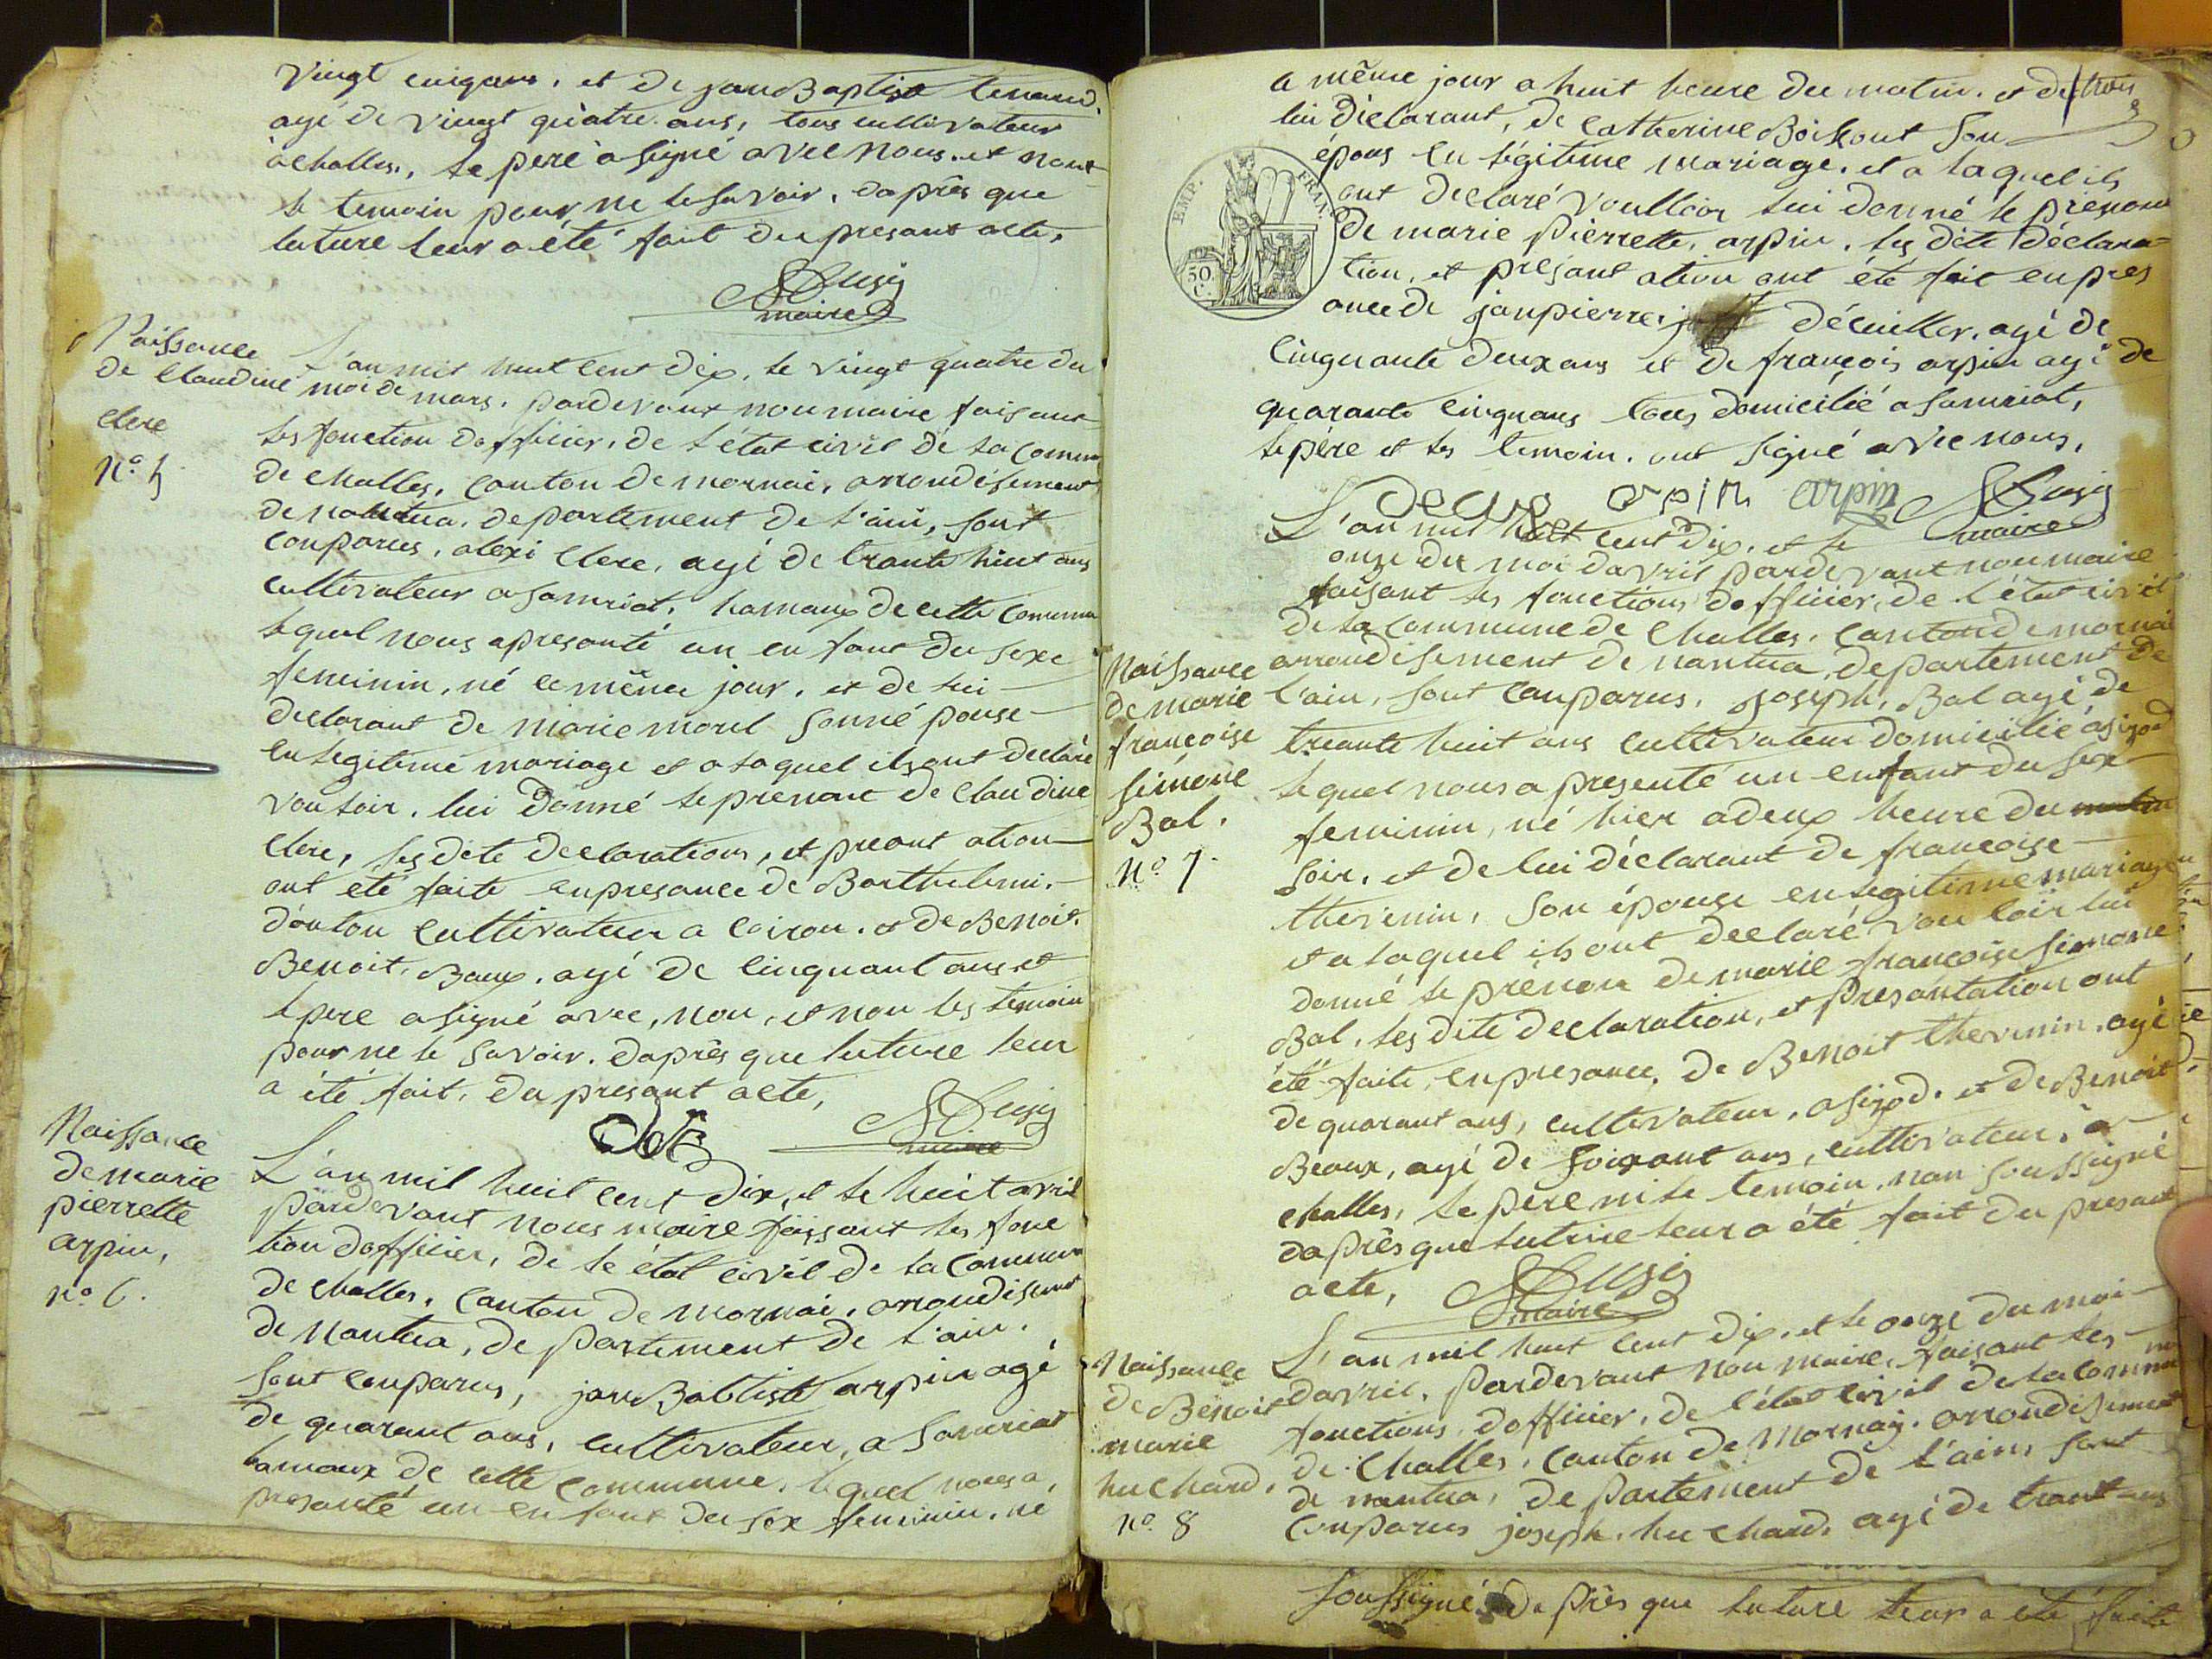 vingt cinq ans, et de jan Baptiste tenand.
agé de vingt quatre ans, tous cultivateur
a challes, le pere a signé avec nous. et nont
le temoin pour ne le savoir, daprês que
luture leur a été fait du presant acte,
maire
Naissance
de Claudine
clere
N.º 5
L'an mil huit cent dix, le vingt quatre du
moi de mars. pardevant nou maire faisant
les fonction dofficier, de l'état civil de la commu
de challes, canton de mornai, arrondisement
de nantua. departement de l'ain, sont
conparus, alexi clere, agé de trante huit ans
cultivateur a samriat, hamaux de cette commun
lequel nous a presanté un enfant du sexe
feminin, né ce même jour, et de lui
declarant de marie morel sonné pouse
en legitime mariage et a laquel ils ont declaré
vouloir, lui donné le prenom de Claudine
clere, les dite declarations, et preant ation
ont eté faite en presance de Barthelemi.
douton cultivateur a coiron. et de Benoit.
Benoit, Baux, agé de cinquant ans et
le pere a signé avec, nou, et non les temoin
pour ne le savoir. daprês que luture leur
a été fait, du presant acte,
maire
Naissance
de marie
pierrette
arpin,
N.º 6.
L'an mil huit cent dix, et le huit avril
pardevant nous maire faissant les fonc
tion dofficier, de le état civil de la commun
de challes, canton de mornai, arrondisment
de Nantua, departement de l'ain.
sont conparus, jan Babtiste arpin agé
de quarant ans, cultivateur, a samriat
hamaux de cette commune, lequel nous a,
presanté un enfant du sex feminin, né
a même jour a huit heure du matin. et de
lui déclarant, de catherine Boisont son
épous en légitime mariage. et a laquel ils
EMP. FRAN.
50 C.
ont declaré voulloir lui donné le prenom
de marie Pierrette, arpin, les dite déclara-
tion, et présant ation ont été fait en pres
ance de janpierre, décuiller, agé de
cinquante deux ans et de françois arpin agé de
quarante cinq ans tous domicilié a samriat,
le père et les temoin. ont signé avec nous,
arpin arpin
maire
L'an mil huit cent dix, et le
onze du moi davril pardevant nou maire
faisant les fonctions dofficier, de l'état civil
de la commune de challes, canton de mornai
arrondisement de nantua, departement de
l'ain, sont conparus, joseph, Bal agé de
treante huit ans cultivateur domicilié a sizod
lequel nous a presenté un enfant du sex
feminin, né hier a deux heure du matin
soir, et de lui déclarant de francoise
thevenin, son épouse en legitime mariage
et a laquel ils ont declaré vou loir lui
donné le prénom de marie francoise simone
Bal, les dite declaration, et presantation ont
été faite, en presance, de Benoit thevenin, agé
de quarant ans, cultivateur, a sizod. et de Benoit
Beaux, agé de soixant ans, cultivateur, à
challes, le père ni le temoin, non soussigné
daprês que luture leur a été fait du presant
acte,
maire
Naissance
de marie
francoise
simone
Bal.
N.º 7.
Naissance
de Benoit
marie
huchard.
N.º 8
L'an mil huit cent dix, et le onze du moi
davril, pardevant nou maire, faisant les
fonctions, dofficier, de l'état civil de la commun
de challes, canton de Mornay, arrondisement
de nantua, departement de l'ain, sont
conparus joseph, huchard, agé de trant ans
soussigné daprês que luture leur a été faite